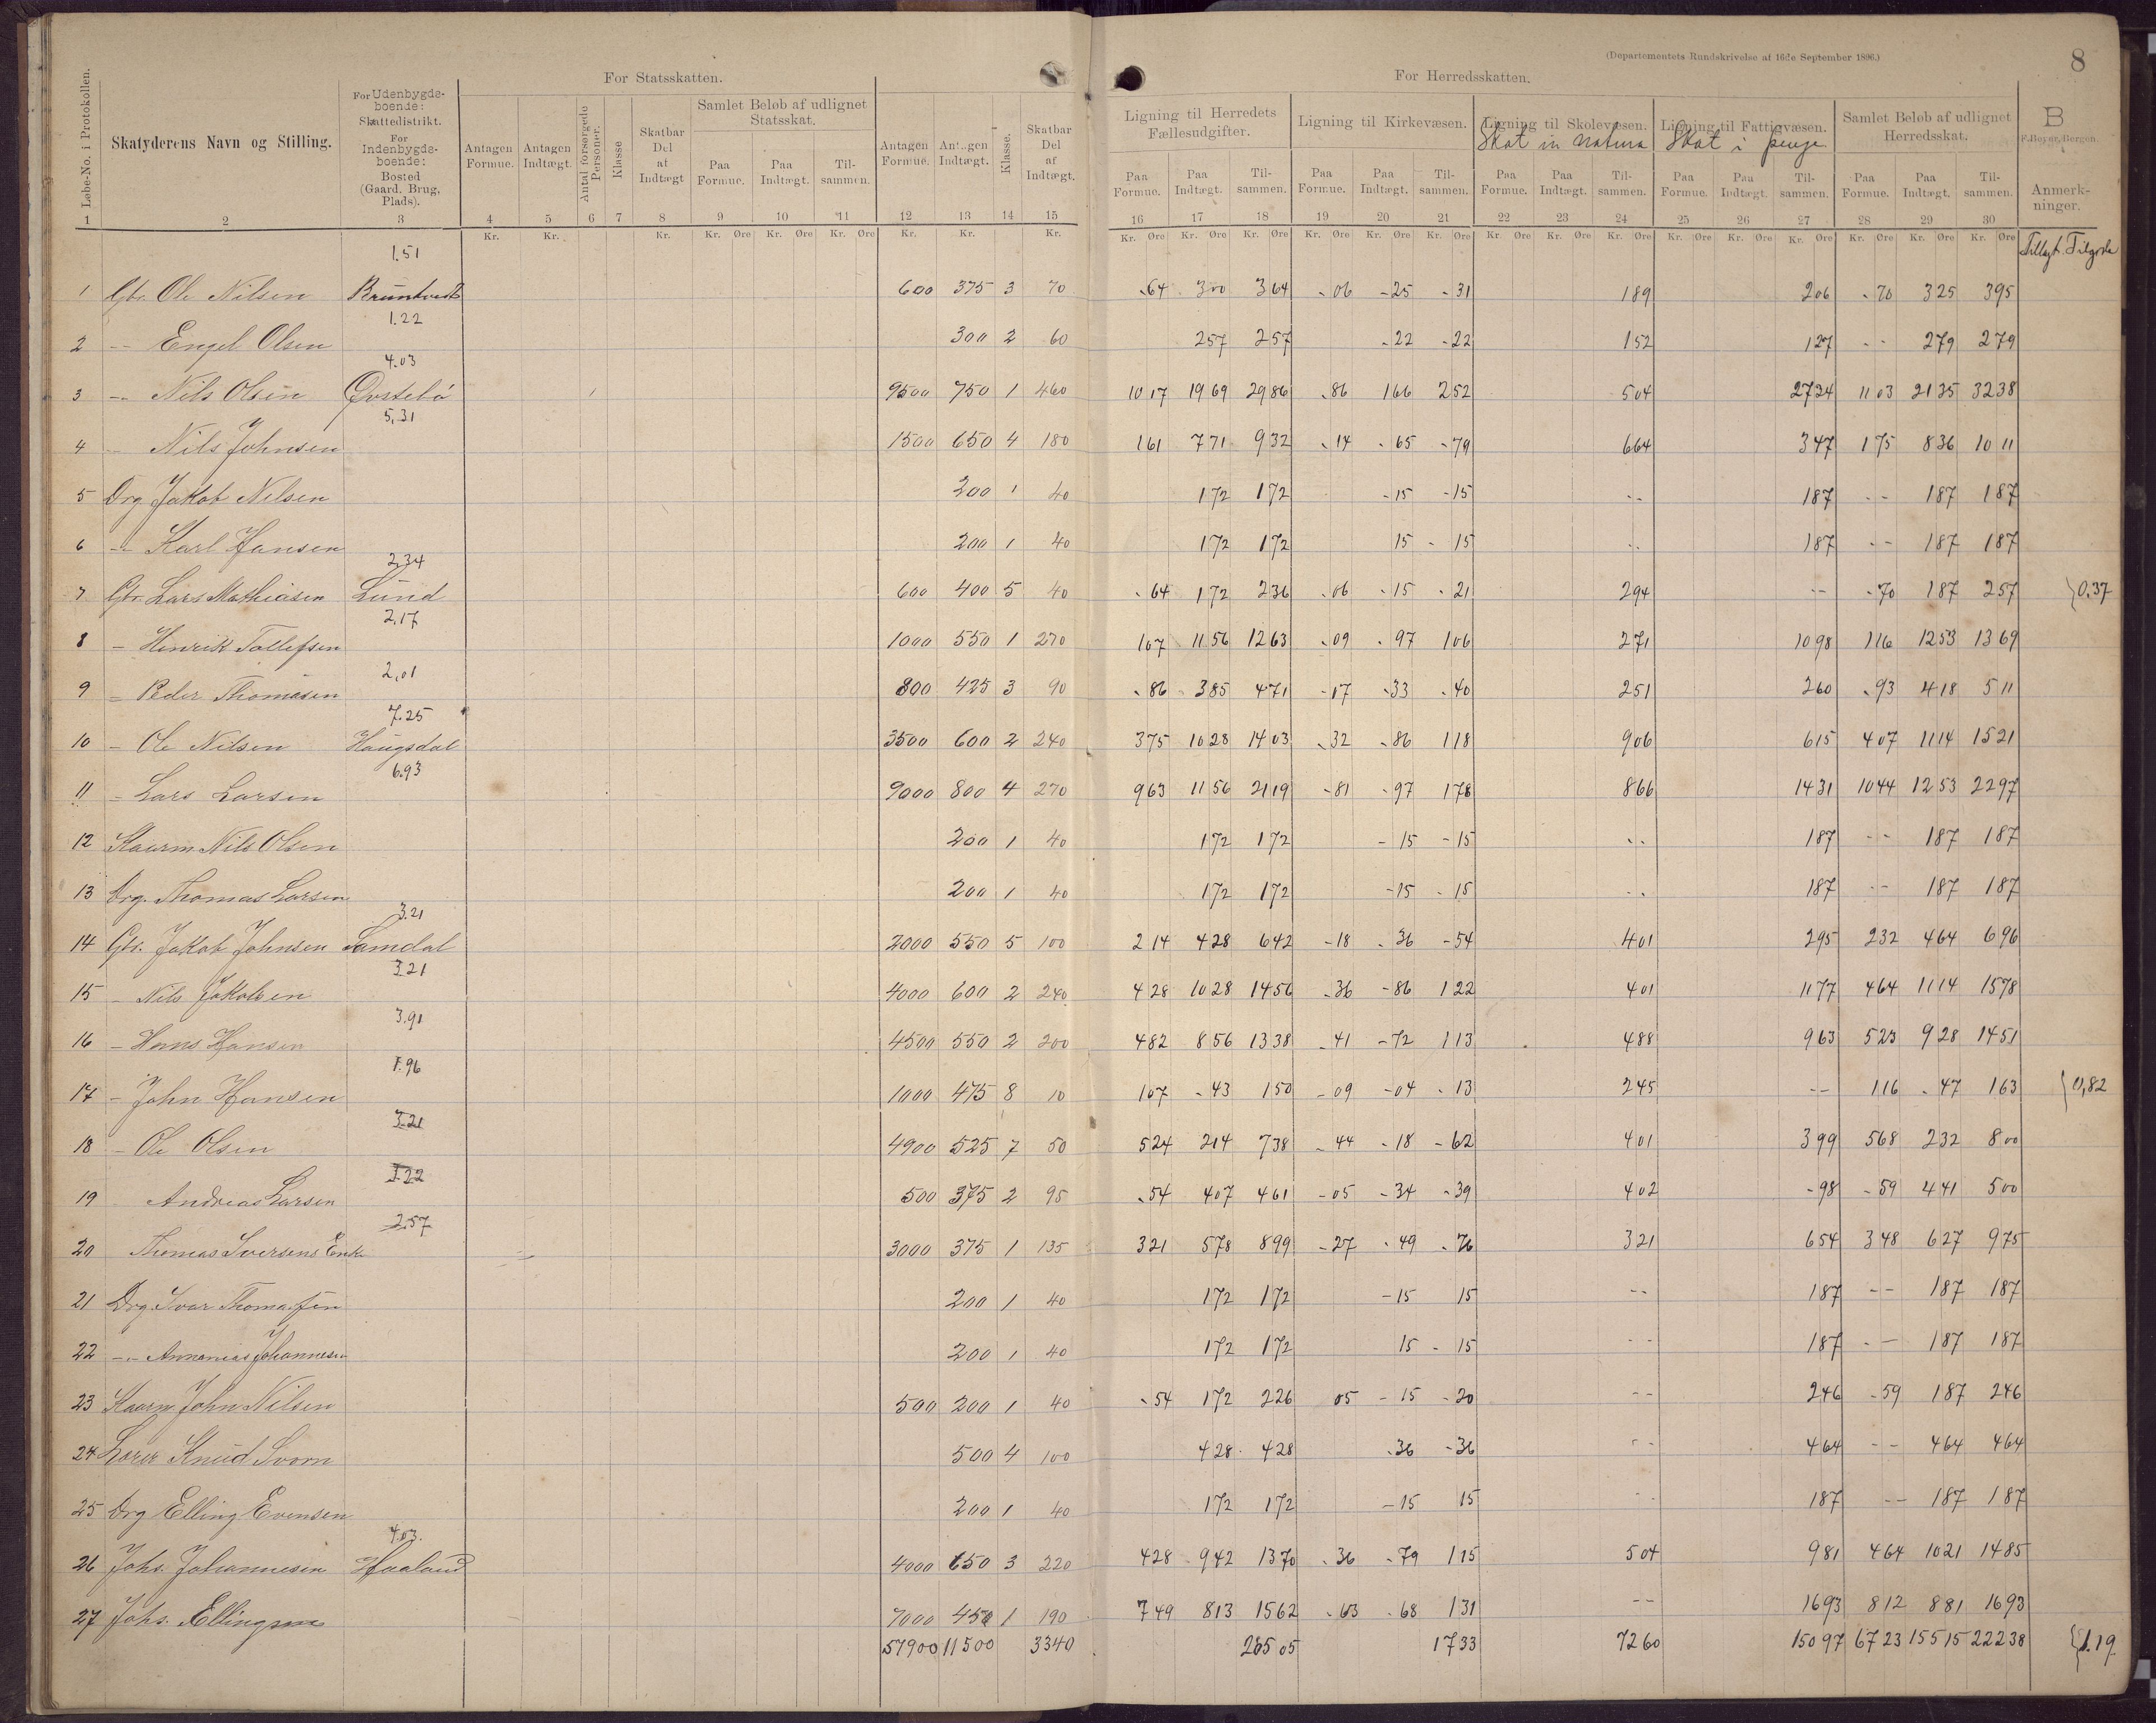 (Departementets Rundskrivelse af 16de September 1896.) 8
For Statsskatten. For Herredsskatten.
B
F. Beyer, Bergen
Løbe-No. i Protokollen. Skatyderens Navn og Stilling. For Udenbygdsboende: Skattedistrikt. For Indenbygdsboende: Bosted (Gaard. Brug. Plads). Antagen Formue. Antagen Indtægt. Antal forsørgede Personer. Klasse Skatbar Del af Indtægt Samlet Beløb af udlignet Statsskat. Paa Formue. Paa Indtægt. Tilsammen. Antagen Formue. Antagen Indtægt. Klasse. Skatbar Del af Indtægt.
Ligning til Herredets Fællesudgifter. Ligning til Kirkevæsen. Ligning til Skolevæsen. Ligning til Fattigvæsen. Samlet Beløb af udlignet Herredsskat. Anmerkninger.
Skat in natura Skat i penge
Paa Formue. Paa Indtægt. Tilsammen. Paa Formue. Paa Indtægt. Tilsammen. Paa Formue. Paa Indtægt. Tilsammen. Paa Formue. Paa Indtægt. Tilsammen. Paa Formue. Paa Indtægt. Tilsammen.
1 2 3 4 5 6 7 8 9 10 11 12 13 14 15 16 17 18 19 20 21 22 23 24 25 26 27 28 29 30
Kr. Kr. Kr. Kr. Øre Kr. Øre Kr. Øre Kr. Kr. Kr. Kr. Øre Kr. Øre Kr. Øre Kr. Øre Kr. Øre Kr. Øre Kr. Øre Kr. Øre Kr. Øre Kr. Øre Kr. Øre Kr. Øre Kr. Øre Kr. Øre Kr. Øre
Tillagt. Tilgode
1.51
1 Gbr. Ole Nilsen Bruntvedt 600 375 3 70 -64 300 364 -06 -25 -31 189 206 -70 325 395
1.22
2 -- Engel Olsen 300 2 60 257 257 -22 -22 152 127 -- 279 279
4.03
3 -- Nils Olsen Øvstebø 9500 750 1 460 10 17 19 69 29 86 -86 166 252 504 27 24 11 03 21 35 32 38
5,31
4 -- Nils Johnsen 1500 650 4 180 161 771 932 -14 -65 -79 664 347 175 836 10 11
5 Drg Jakob Nilsen 200 1 40 172 172 -15 -15 -- 187 -- 187 187
6 -- Karl Hansen 200 1 40 172 172 15 -15 -- 187 -- 187 187
2.34
7 Gbr Lars Mathiasen Lund 600 400 5 40 -64 172 236 -06 -15 -21 294 -- -70 187 257 } 0.37
2.17
8 - Henrik Tollefsen 1000 550 1 270 107 11 56 12 63 -09 -97 106 271 10 98 116 12 53 13 69
2,01
9 - Peder Thomasen 800 425 3 90 -86 385 471 -17 -33 -40 251 260 -93 418 5 11
7.25
10 - Ole Nilsen Haugsdal 3500 600 2 240 375 10 28 14 03 -32 -86 118 906 615 407 11 14 15 21
6.93
11 - Lars Larsen 9000 800 4 270 963 11 56 21 19 -81 -97 178 866 14 31 10 44 12 53 22 97
12 Kaarm Nils Olsen 200 1 40 172 172 -15 -15 -- 187 -- 187 187
13 Drg. Thomas Larsen 200 1 40 172 172 -15 -15 -- 187 -- 187 187
3.21
14 Gbr. Jakob Johnsen Samdal 2000 550 5 100 2 14 428 642 -18 -36 -54 401 295 232 464 696
3.21
15 - Nils Jakobsen 4000 600 2 240 428 10 28 14 56 -36 -86 122 401 11 77 464 11 14 15 78
3.91
16 - Hans Hansen 4500 550 2 200 482 856 13 38 -41 -72 113 488 963 523 928 14 51
1.96
17 - John Hansen 1000 475 8 10 107 -43 150 -09 -04 -13 245 -- 116 -47 163 { 0,82
3.21
18 - Ole Olsen 4900 525 7 50 524 214 738 -44 -18 -62 401 399 568 232 800
3.22
19 Andreas Larsen 500 375 2 95 -54 407 461 -05 -34 -39 402 -98 -59 441 500
2.57
20 Thomas Iversens Enke 3000 375 1 135 321 578 899 -27 -49 -76 321 654 348 627 975
21 Drg. Ivar Thomassen 200 1 40 172 172 -15 15 -- 187 -- 187 187
22 -- Annanias Johannesen 200 1 40 172 172 15 -15 -- 187 -- 187 187
23 Kaarm John Nilsen 500 200 1 40 -54 172 226 05 -15 -20 -- 246 -59 187 246
24 Lærer Knud Svorn 500 4 100 428 428 -36 -36 -- 464 -- 464 464
25 Drg Elling Evensen 200 1 40 172 172 -15 15 -- 187 -- 187 187
4.03.
26 Johs. Johannesen Haaland 4000 650 3 220 428 942 13 70 -36 -79 115 504 981 464 10 21 14 85
27 Johs. Ellingsen 7000 450 1 190 749 813 15 62 -63 -68 131 -- 16 93 812 881 16 93
57900 11500 3340 205 05 17 33 72 60 150 97 67 23 155 15 222 38 { 1.19